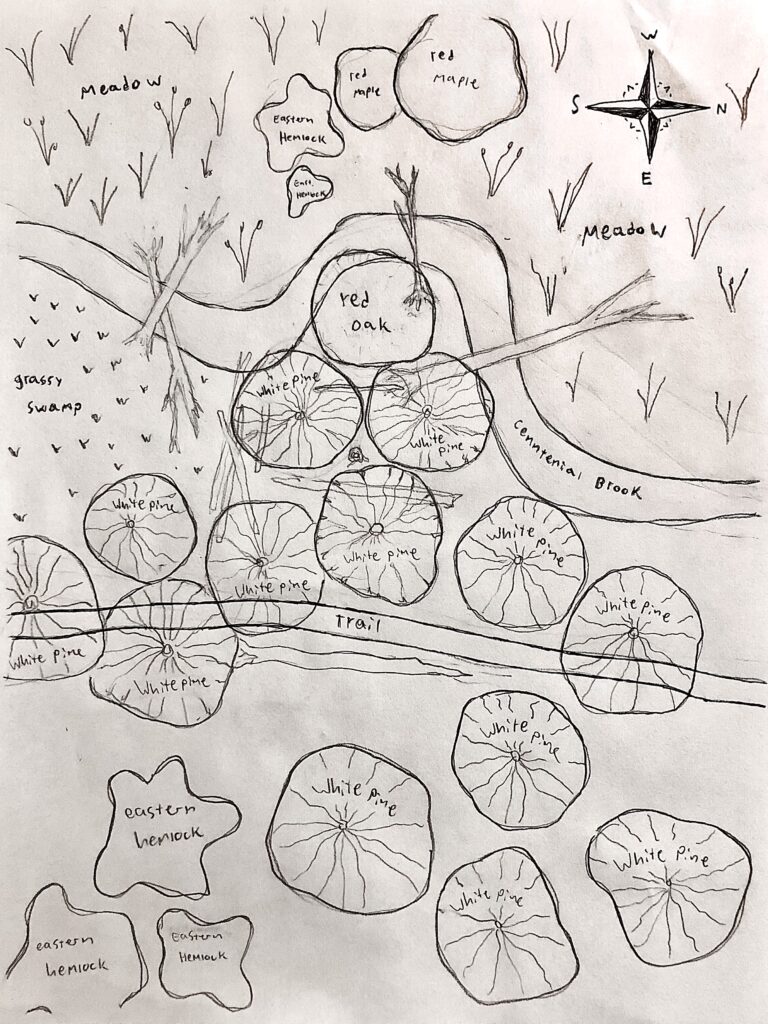 Meadow
red
Maple
red
Maple
W
S
N
E
Eastern
Hemlock
East.
Hemlock
Meadow
red
oak
grassy
swamp
White pine
White
pine
Cenntenial Brook
White pine
White pine
White pine
White
pine
White pine
Trail
White pine
White pine
White
pine
White
pine
eastern
hemlock
White pine
White pine
eastern
hemlock
Eastern
Hemlock